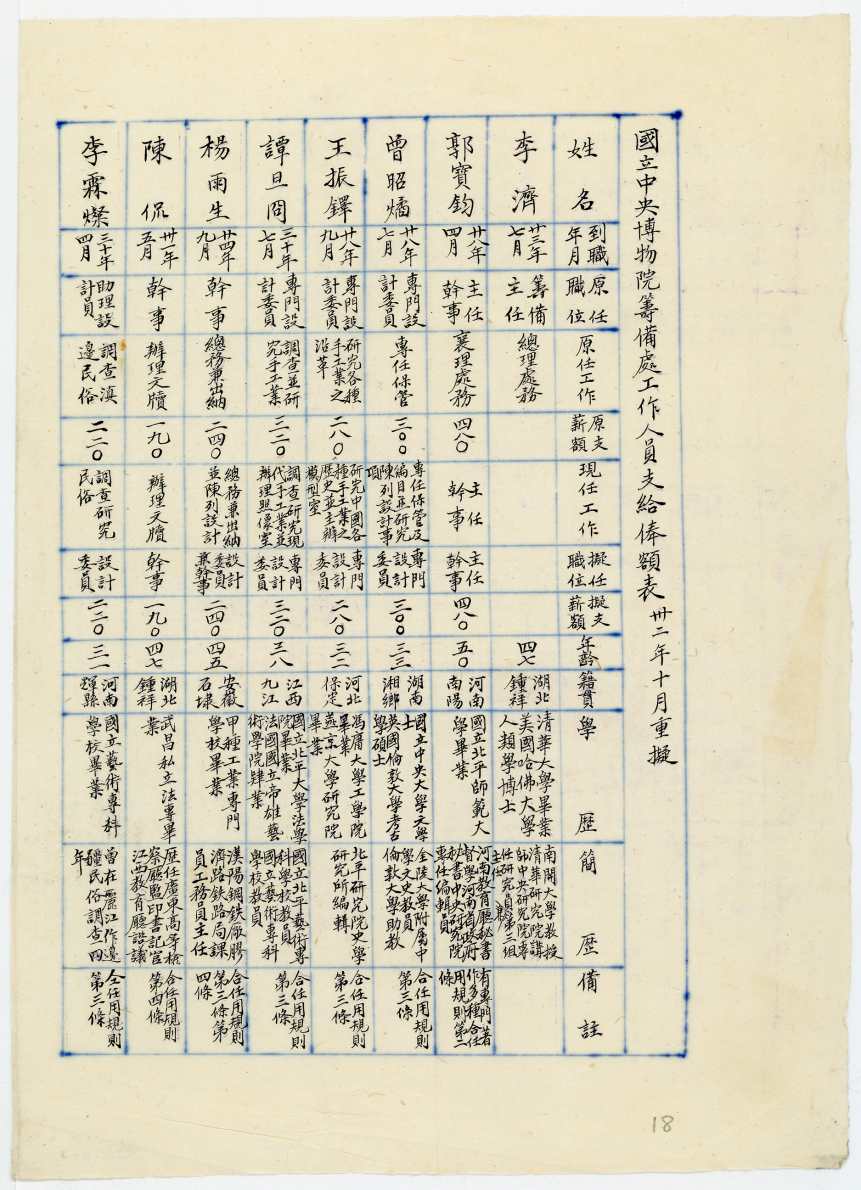 國立中央博物院籌備處工作人員支給俸額表 卅二年十月重擬
姓名
到職
年月
原任
職位
原任工作
原支
薪額
現任工作
擬任
職位
擬支
薪額
年齡
籍貫
學歷
簡歷
備註
李濟
廿三年
七月
籌備
主任
總理處務
四七
湖北
鍾祥
清華大學畢業
美國哈佛大學
人類學博士
南開大學教授
清華研究院講
師中央研究院專
任研究員兼第三組
主任
郭寶鈞
廿八年
四月
主任
幹事
襄理處務
四八〇
主任
幹事
主任
幹事
四八〇
五〇
河南
南陽
國立北平師範大
學畢業
河南教育廳秘書
督學河南省政府
秘書中央研究院
專任編輯員
有專門著
作多種合任
用規則第二
條
曾昭燏
廿八年
七月
專門設
計委員
專任保管
三〇〇
專任保管及
編目並研究
陳列設計事
項
專門
設計
委員
三〇〇
三三
湖南
湘鄉
國立中央大學文學
士
英國倫敦大學考古
學碩士
金陵大學附屬中
學文史教員
倫敦大學助教
合任用規則
第三條
王振鐸
廿八年
九月
專門設
計委員
研究各種
手工業之
沿革
二八〇
研究中國各
種手工業之
歷史並主辦
模型室
專門
設計
委員
二八〇
三二
河北
保定
馮庸大學工學院
畢業
燕京大學研究院
畢業
北平研究院史學
研究所編輯
合任用規則
第三條
譚旦冏
三十年
七月
專門設
計委員
調查並研
究手工業
三二〇
調查研究現
代手工業並
辦理照像室
專門
設計
委員
三二〇
三八
江西
九江
國立北平大學法學
院畢業
法國國立帝雄藝
術學院肄業
國立北平藝術專
科學校教員
國立藝術專科
學校教員
合任用規則
第三條
楊雨生
廿四年
九月
幹事
總務兼出納
二四〇
總務兼出納
並陳列設計
設計
委員
兼幹事
二四〇
四五
安徽
石埭
甲種工業專門
學校畢業
漢陽鋼鉄廠膠
濟路鉄路局課
員工務員主任
合任用規則
第三條第
四條
陳侃
廿一年
五月
幹事
辦理文牘
一九〇
辦理文牘
幹事
一九〇
四七
湖北
鍾祥
武昌私立法專畢
業
歷任廣東高等檢
察廳監印書記官
江西教育廳諮議
合任用規則
第四條
李霖燦
三十年
四月
助理設
計員
調查滇
邊民俗
二二〇
調查研究
民俗
設計
委員
二二〇
三一
河南
輝縣
國立藝術專科
學校畢業
曾在麗江作邊
疆民俗調查四
年
仝任用規則
第三條
18